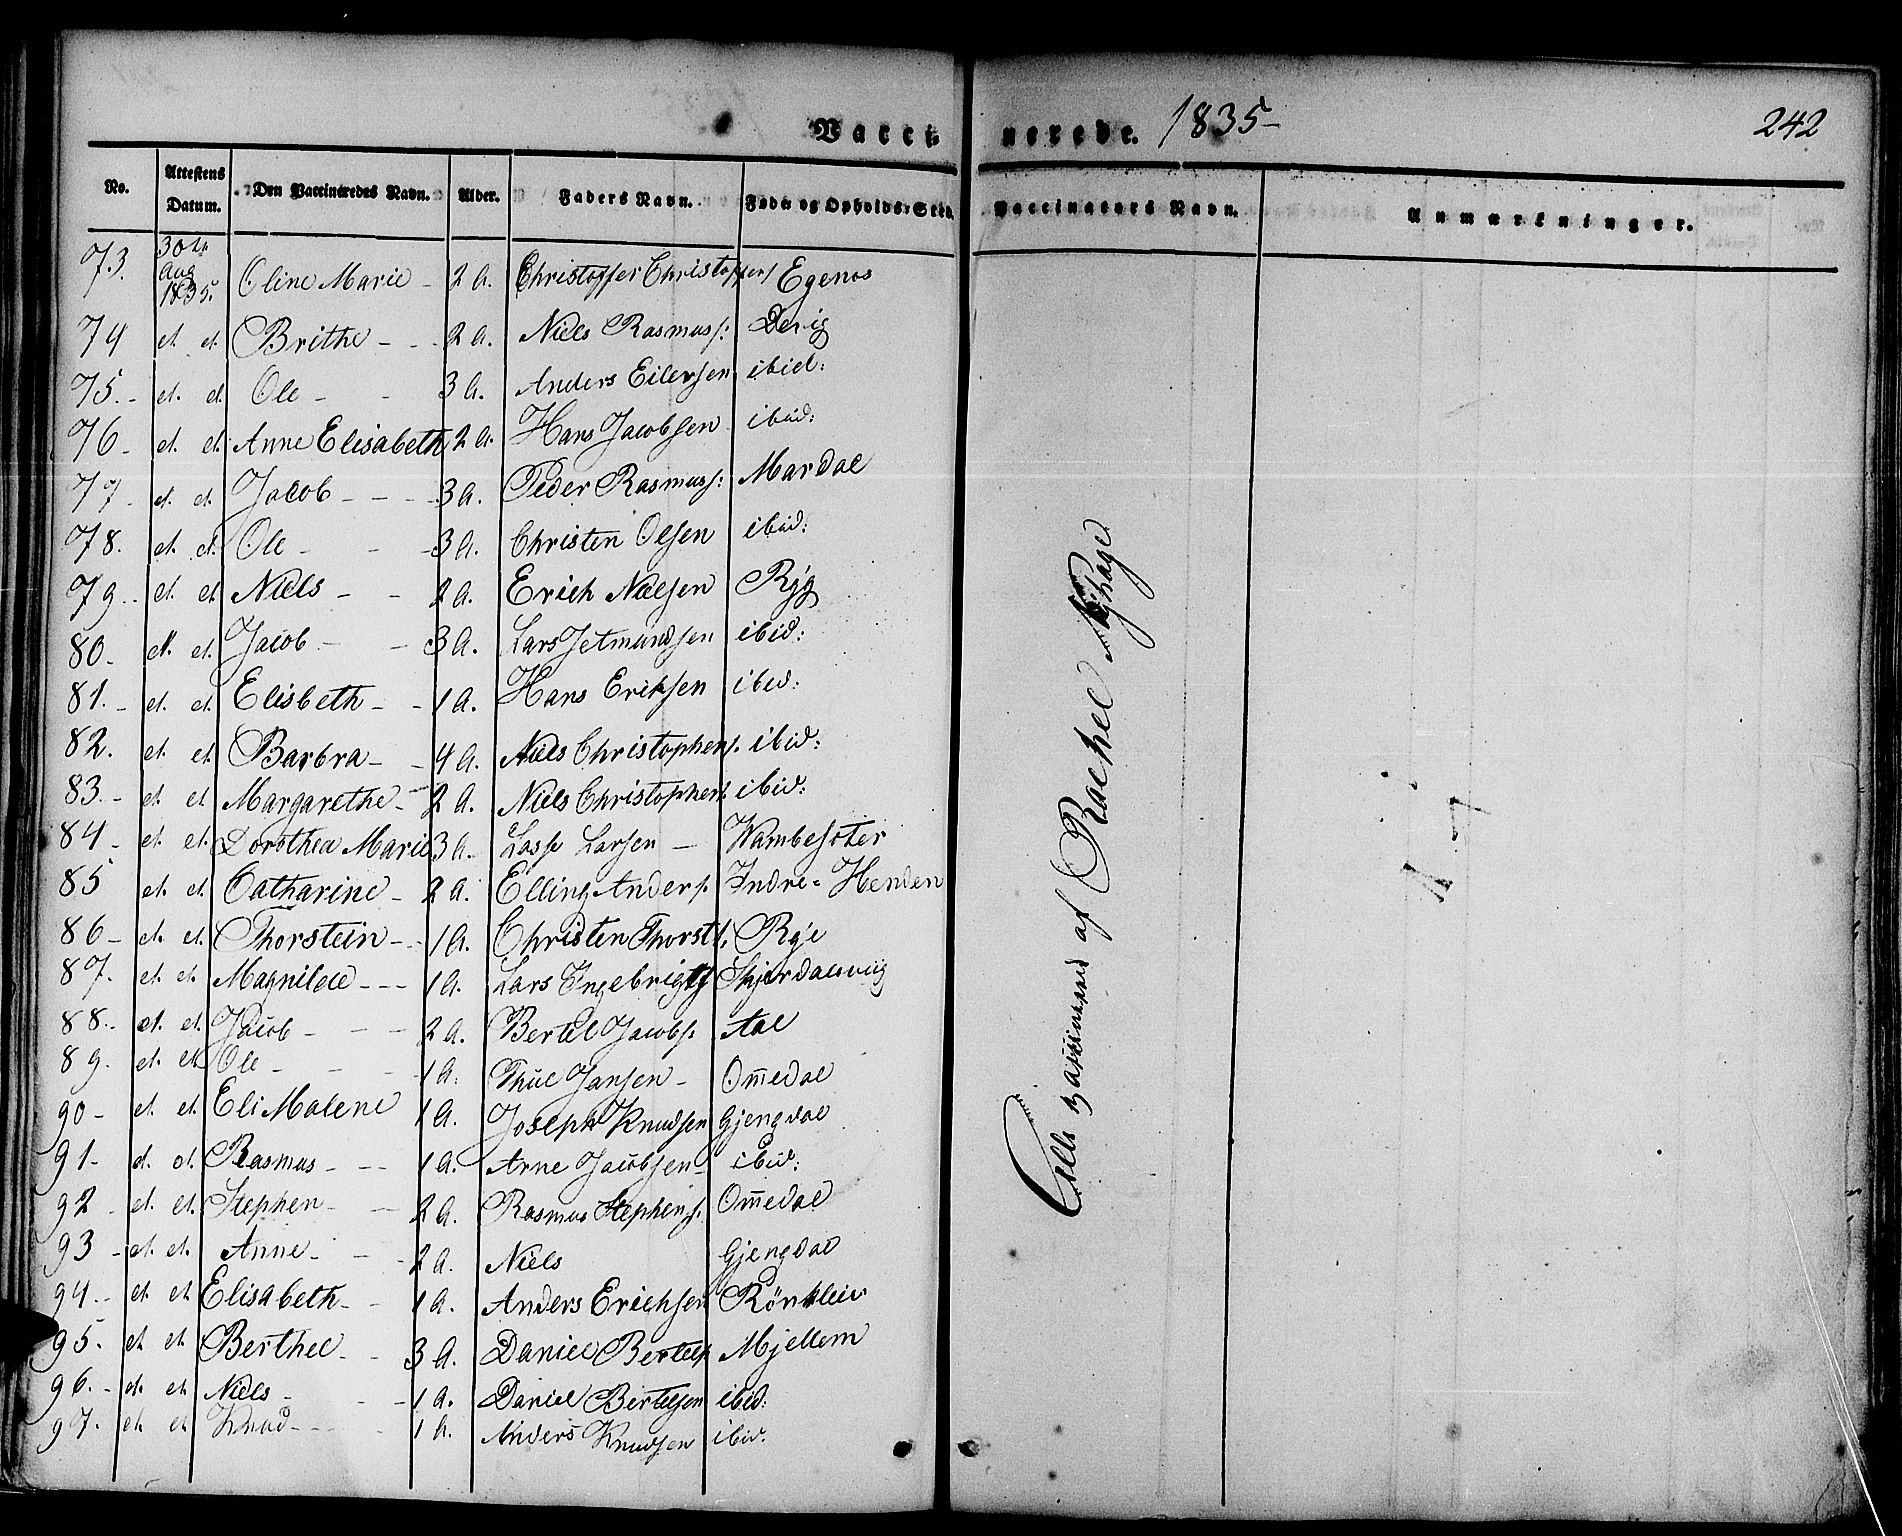 Vacci nerede. 1835- 242
No. Attestens Datum. Den Vaccineredes Navn. Alder. Faders Navn. Føde og Opholds-Sted. Vaccinateurs Navn. Anmærkninger.
73. 30te Aug 1835. Oline Marie - 2 A. Christopher Christophers Egenes
74 et. et. Brithe - - 2 A. Niels Rasmuss: Devig
75.- et. et. Ole - - 3 A. Anders Eilersen ibid:
76- et. et. Anne Elisabeth 2 A. Hans Jacobsen ibid:
77- et. et. Jacob - - - 3 A. Peder Rasmuss: Mardal
78. et. et. Ole - - - 3 A. Christen Olsen ibid:
79.- et. et. Niels - - 2 A. Erich Nielsen Ryg
80- et. et. Jacob - - 3 A. Lars Jetmundsen ibid:
81.- et. et. Elisbeth - - 1 A. Hans Eriksen ibid:
82. et. et. Barbra - - 4 A. Niels Christophers. ibid:
83.- et. et. Margarethe - 2 A. Niels Christophers. ibid:
84- et. et. Dorothea Marie 3 A. Lasse Larsen - Wambesøter
85 et. et. Catharine - 2 A. Elling Anders. Indre- Henden
86- et. et. Thorstein - - 1 A. Christen Thorst: Ryg
87. et. et. Magnilde - - - 1 A. Lars Ingebrigts Skjerdalsviig
88.- et. et. Jacob - - - 2 A. Bertel Jacobs. Aae
89. et. et. Ole - - - 1 A. Thue Jansen - Om̅edal
90- et. et. Eli Malene 1 A. Joseph Knudsen Gjengdal
91- et. et. Rasmus - - - 1 A. Arne Jacobsen - ibid:
92 et. et. Stephen - - 2 A. Rasmus Stephens. Om̅edal
93 - et. et. Anne - - - 2 A. Niels Gjengdal
94.- et. et. Elisabeth - - 1 A. Anders Erichsen Rönkleiv
95. et. et. Berthel - - 3 A. Daniel Bertels Mjellem
96.- et. et. Niels - - 1 A. Daniel Bertelsen ibid:
97. et. et. Knud - - - - 1 A. Anders Knudsen ibid.
Alle vaccinered af Rachel Myhage